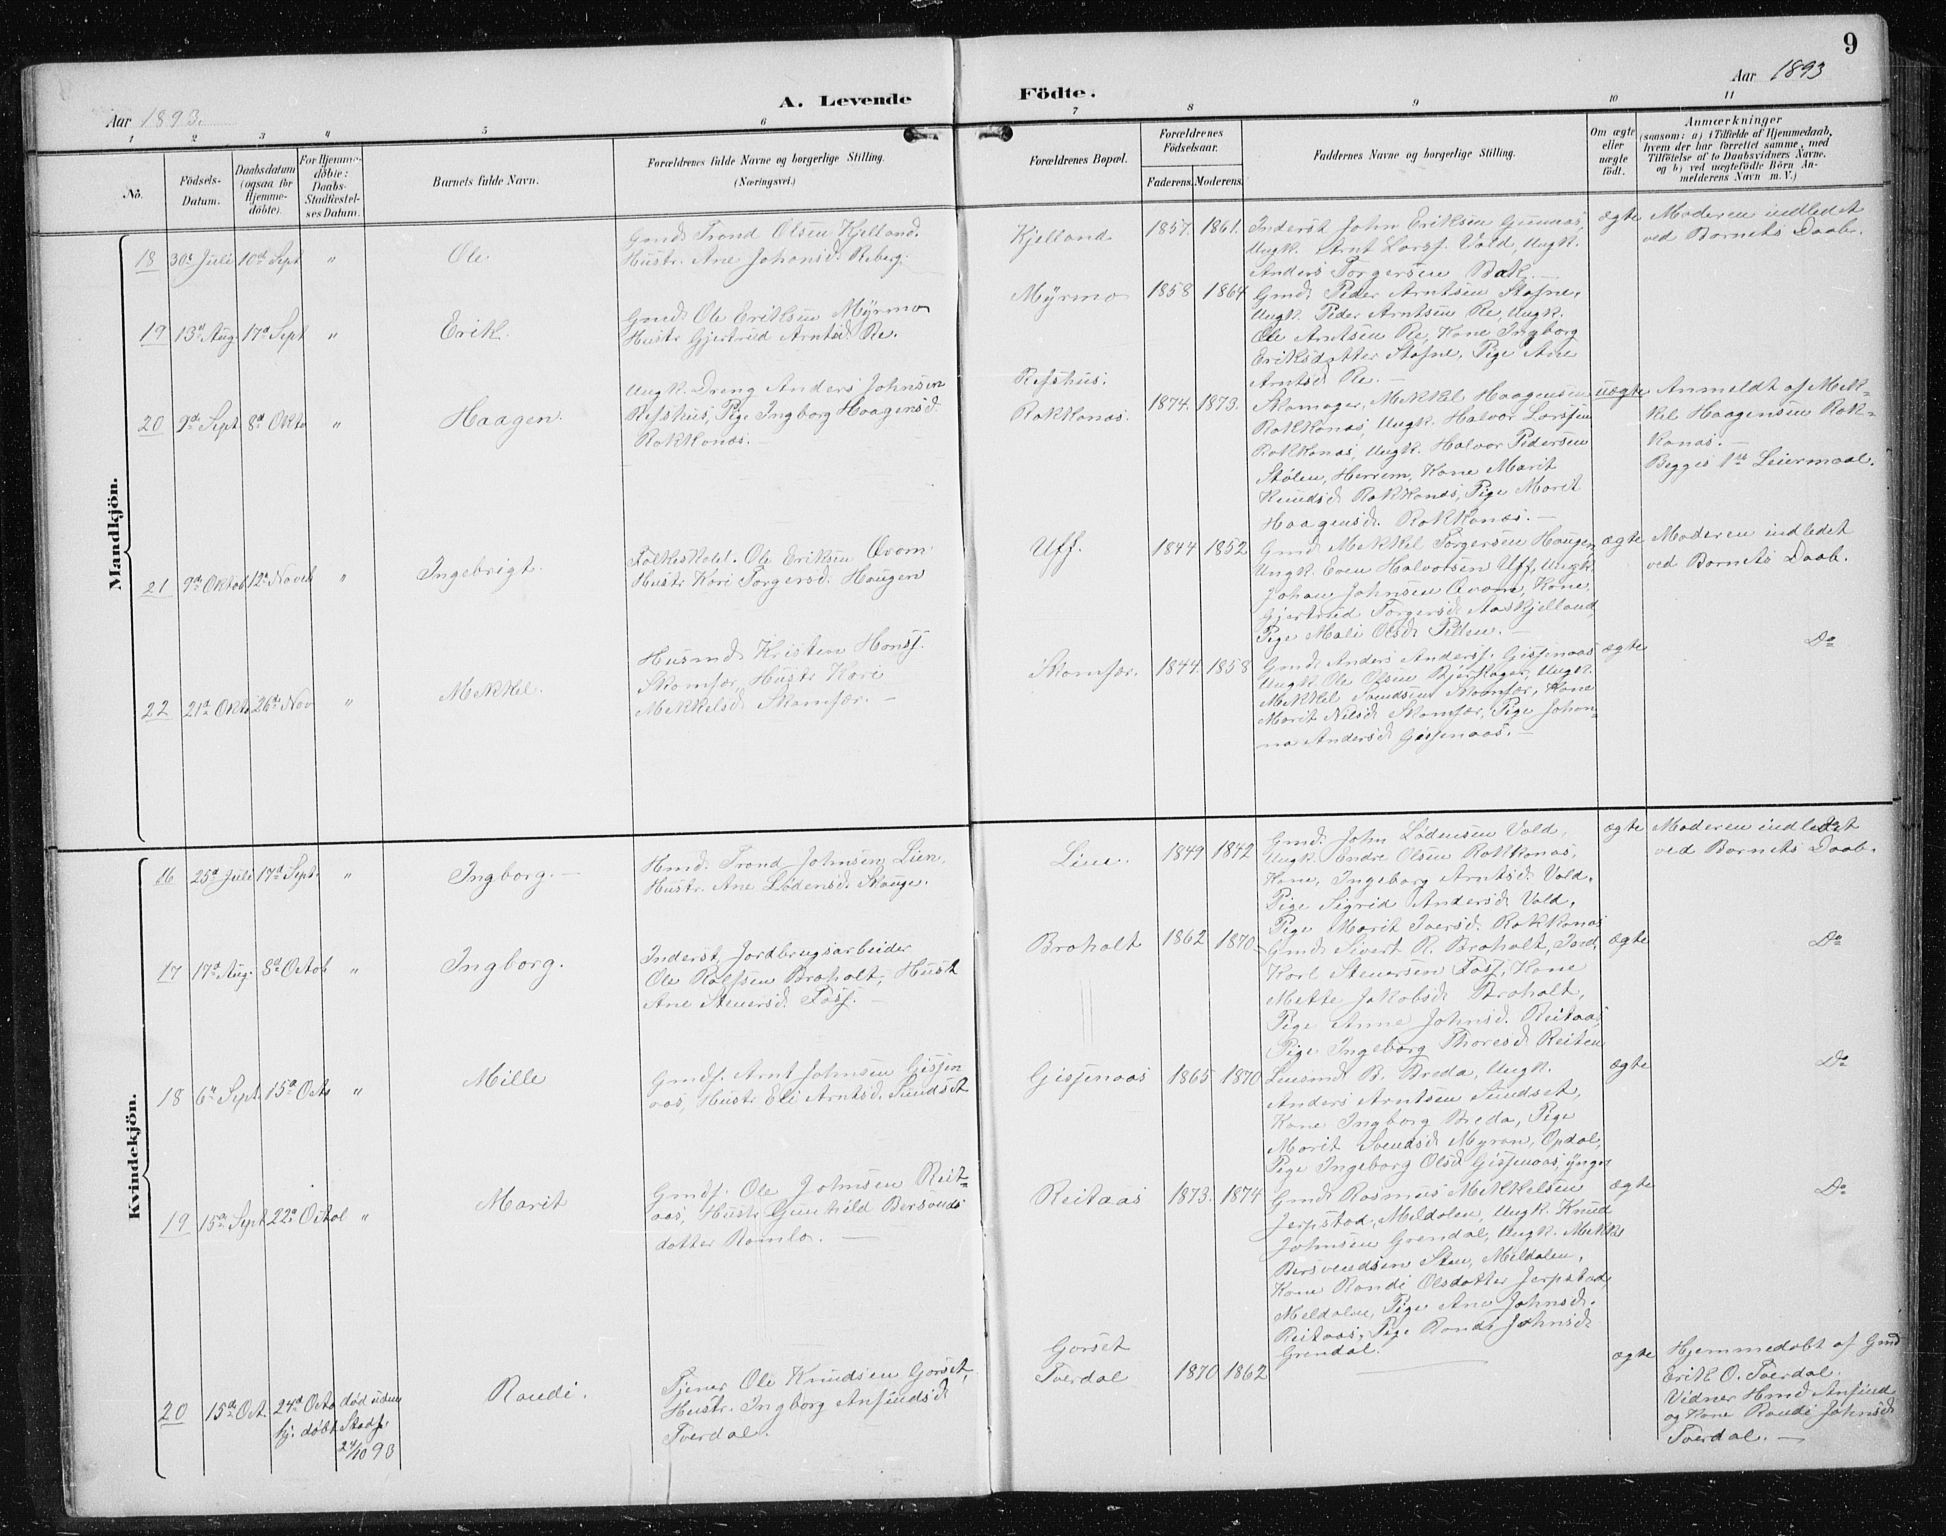 9
Aar 1893.
A. Levende
Födte.
Aar 1893
1 2 3 4 5 6 7 8 9 10 11
No.
Födsels-
Datum.
Daabsdatum
(ogsaa for
Hjemme-
döbte).
For Hjemme-
döbte:
Daabs-
Stadfæstel-
ses Datum.
Barnets fulde Navn.
Forældrenes fulde Navne og borgerlige Stilling.
(Næringsvei.)
Forældrenes Bopæl.
Forældrenes
Födselsaar.
Faderens. Moderens.
Faddernes Navne og borgerlige Stilling.
Om ægte
eller
uægte
födt.
Anmærkninger
(saasom: a) i Tilfælde af Hjemmedaab,
hvem der har forrettet samme, med
Tilföielse af to Daabsvidners Navne.
og b) ved uægtefödte Börn An-
melderens Navn m. V.)
Mandkjön.
18 30te Juli 10de Sept " Ole.
Gmd. Trond Olsen Kjelland.
Hustr. Ane Johansd. Reberg.
Kjelland 1857. 1861.
Inderst John Eriksen Gunnas,
Ungk. Arnt Larsf. Vold, Ungk.
Anders Torgersen Bak.—
ægte
Moderen indledet
ved Barnets Daab.
19 13de Aug. 17de Sept " Erik.
Gmd. Ole Eriksen Myrmo
Hustr. Gjertrud Arntsd. Re.
Myrmo 1858 1864
Gmd. Peder Arntsen Stafne,
Ungk. Peder Arntsen Re, Ungk.
Ole Arntsen Re, Kone Ingborg
Eriksdatter Stafne, Pige Ane
Arntsd. Re.—
20 9de Sept. 8de Okto " Haagen.
Ungk. Dreng Anders Johnsen
Refshus, Pige Ingborg Haagensd.
Rokkonæs.—
Refshus.
Rokkonæs. 1874. 1873.
Skomager, Mekkel Haagensen
Rokkonæs, Ungk. Halvor Larssen
Rokkonæs, Ungk. Halvor Pedersen
Stölen, Herrem, Kone Marit
Knudsd. Rokkonæs, Pige Marit
Haagensd. Rokkonæs.—
uægte
Anmeldt af Mek-
kel Haagensen Rok-
konæs.—
Begges 1ste Leiermaal.
21 9de Oktob 12te Noveb " Ingebrigt.
Folkeskolel. Ole Eriksen Qvam
Hustr Kari Torgersd. Haugen
Uff. 1844 1852
Gmd. Mekkel Torgersen Haugen
Ungk. Even Halvorsen Uff, Ungk.
Johan Johnsen Qvam, Kone,
Gjertrud Torgersd. Aaskjelland,
Pige Mali Olsd. .—
ægte
Moderen indledet
ved Barnets Daab.
22 21de Okto 26de Nov " Mekkel.
Husmd. Kristen Hansf.
Skamfær, Hustr Kari
Mekkelsd. Skamfær.—
Skamfær. 1844 1858
Gmd. Anders Andersf. Gisjenaas
Ungk. Ole Olsen Bjerkager, Ungk.
Mekkel Svendsen Skamfær, Kone
Marit Nilsd. Skamfær, Pige Johan-
na Andersd. Gisjenaas.—
ægte
Do
Kvindekjön.
16 25de Juli 17de Sept. " Ingborg.—
Hmd. Trond Johnsen Lien,
Hustr. Ane Lödensd. Skauge.
Lien. 1849 1842
Gmd. John Lödensen Vold,
Ungk. Endre Olsen Rokkonæs,
Kone, Ingeborg Arntsd. Vold,
Pige Sigrid Andersd. Vold,
Pige Marit Iversd. Rokkonæs
ægte
Moderen indledet
ved Barnets Daab.
17 17de Aug. 8de Octob " Ingborg.
Inderst, Jordbrugsarbeider
Ole Rolfsen Broholt, Hustr
Ane Steversd. Fossf.—
Broholt 1862 1870
Gmd. Sivert R. Broholt,
Karl Steversen Fossf, Kone
Mette Jakobsd. Broholt,
Pige Anne Johnsd. Reitaas,
Pige Ingeborg Thoresd. Reiten
ægte
Do
18 6te Sept. 15de Octo " Mille
Gmdf. Arnt Johnsen Gisjen
aas, Hustr Eli Arntsd. Sundset
Gisjenaas 1865 1870
Lensmd. B. Breda, Ungk.
Anders Arntsen Sundset,
Kone Ingborg Breda, Pige
Marit Svendsd. Myran, Opdal,
Pige Ingeborg Olsd. Gisjenaas, yngre
ægte
Do
19 15de Sept 22de Octob " Marit
Gmdf. Ole Johnsen Reit-
aas, Hustr. Gunhild Bersvends
datter Ramlo.—
Reitaas 1873. 1874
Gmd. Rasmus Mekkelsen
Jerpstad, Meldalen, Ungk. Knud
Johnsen Grendal, Ungk. Mekkel
Bersvendsen Sten, Meldalen,
Kone Randi Olsdatter Jerpstad,
Meldalen, Pige Ane Johnsd.
Reitaas, Pige Randi Johnsd.
Grendal.
ægte
Do
20 15de Oct. 24de Octo
hj. döbt
död uden
Stadf.
24/10 93
Randi.
Tjener Ole Knudsen Gorset,
Hustr. Ingborg Ansfindsd.
Tverdal.
Gorset
Tverdal 1870 1862
ægte
Hjemmedöbt af Gmd
Erik O. Tverdal.
Vidner Hmd Ansfind
og Kone Randi Johnsd.
Tverdal.—